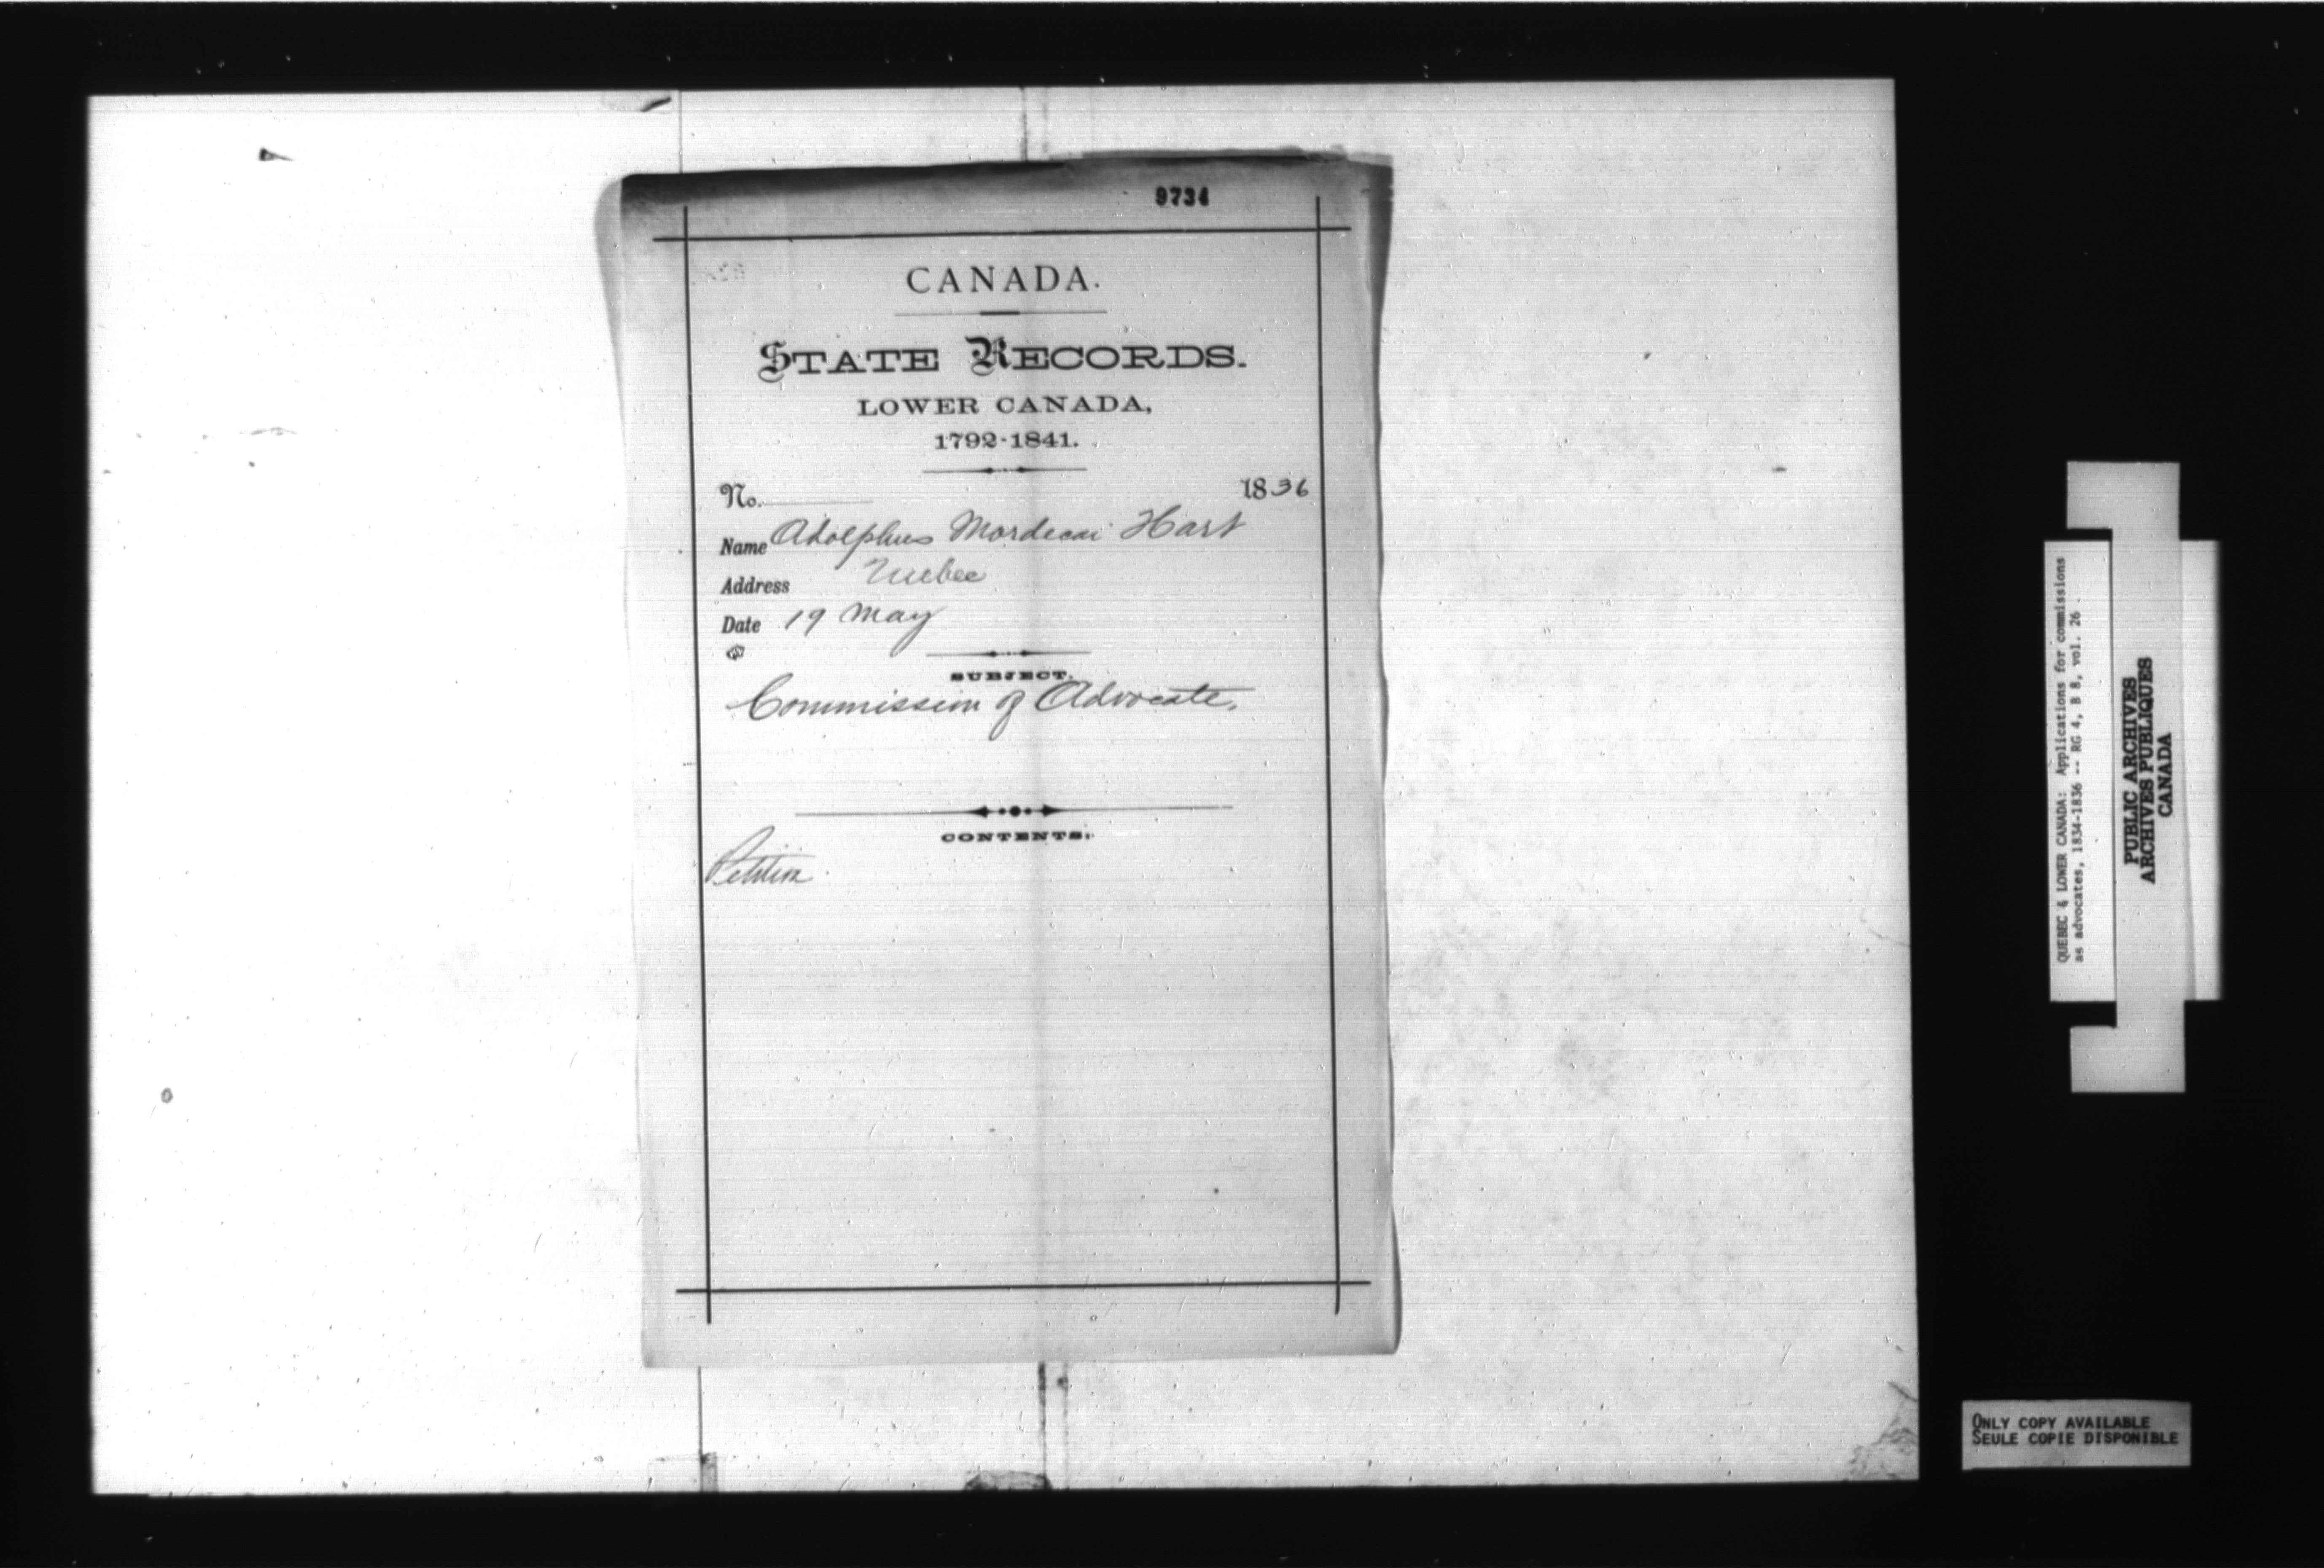 9734
CANADA.
STATE RECORDS.
LOWER CANADA,
1792-1841.
No. 1836
Name Adolphus Mordecai Hart
Address Quebec
Date 19 May
SUBJECT.
Commission of Advocate.
CONTENTS.
Petition
QUEBEC & LOWER CANADA: Applications for commissions
as advocates, 1834-1836 -- RG 4, B 8, vol. 26.
PUBLIC ARCHIVES
ARCHIVES PUBLIQUES
CANADA
ONLY COPY AVAILABLE
SEULE COPIE DISPONIBLE